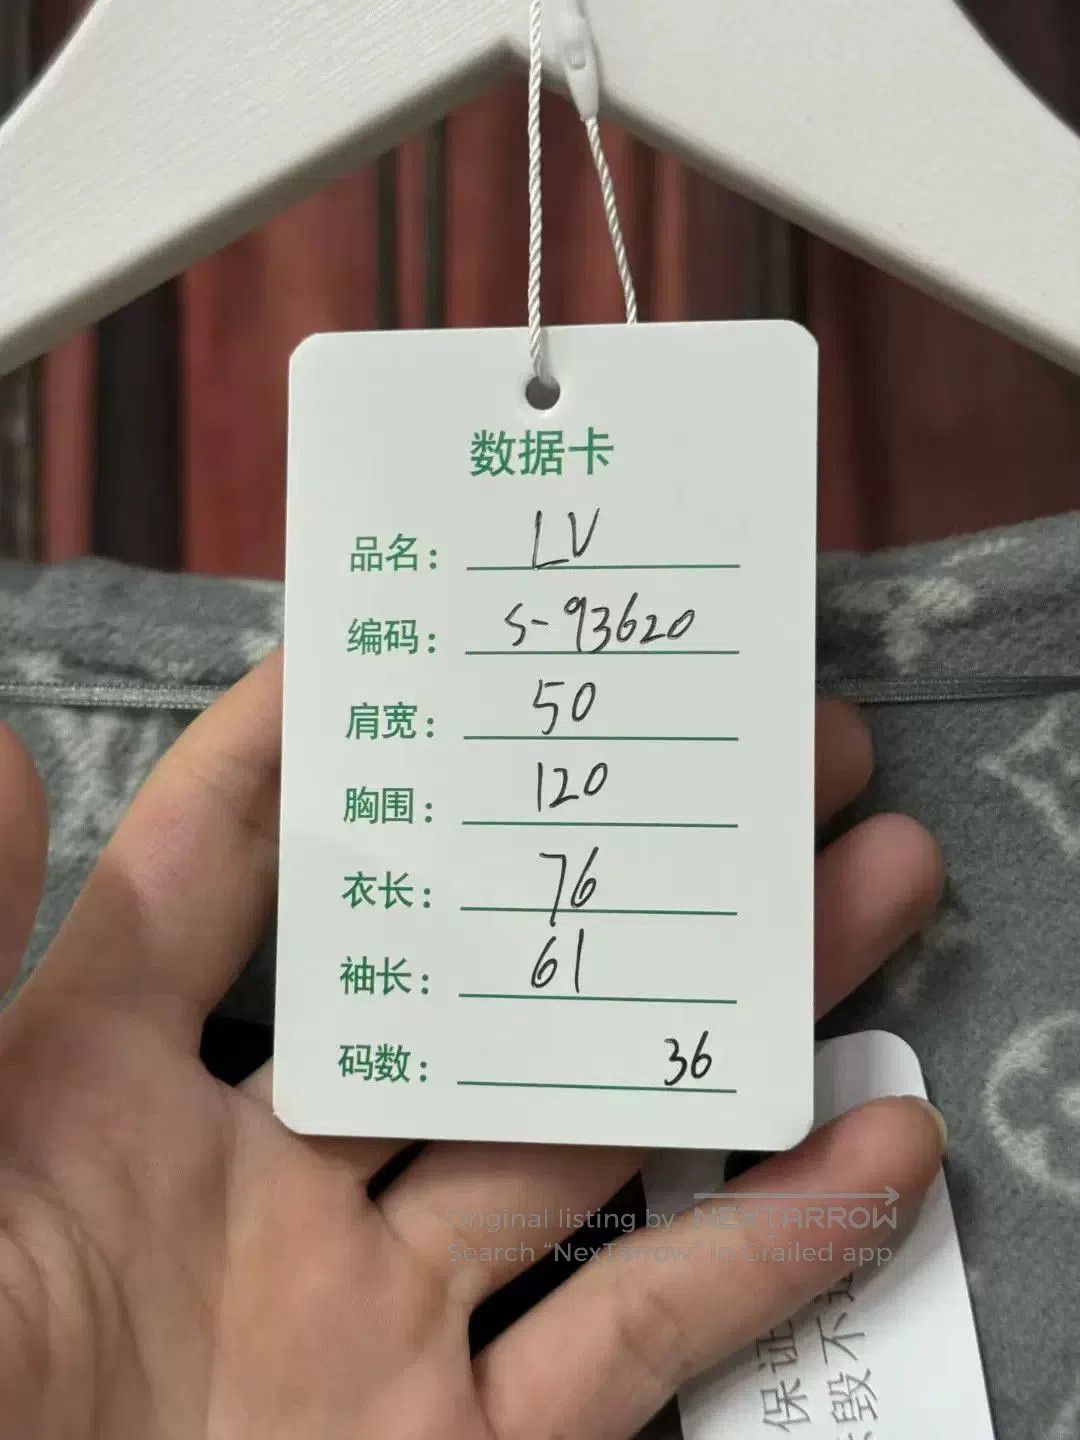 数据卡
品名： LV
编码： S-93620
肩宽： 50
胸围： 120
衣长： 76
袖长： 61
码数： 36
Original listing by NEXTARROW
Search "NexTarrow" in Grailed app
保证
毁不退